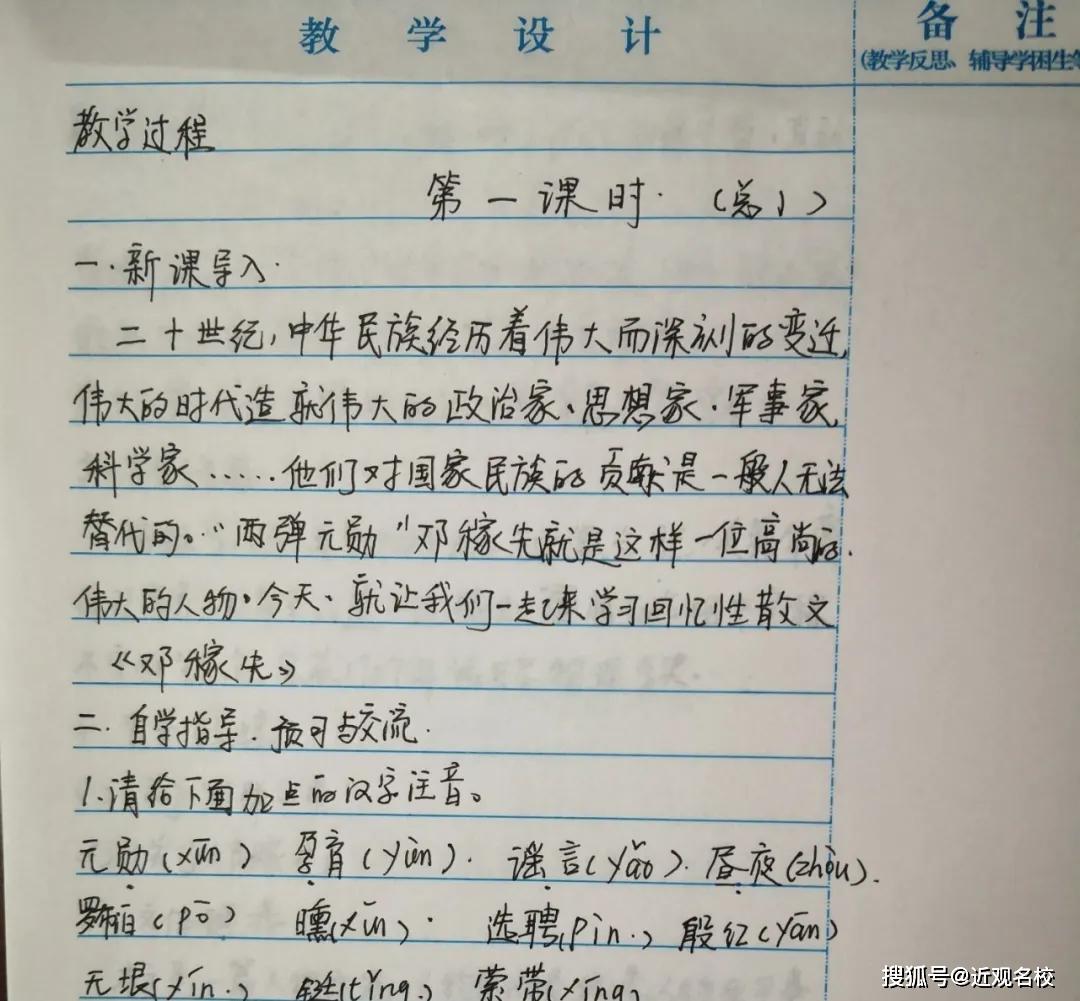 教学设计
备注
(教学反思、辅导学困生等
教学过程
第一课时·(总1)
一.新课导入·
二十世纪,中华民族经历着伟大而深刻的变迁,
伟大的时代造就伟大的政治家、思想家·军事家,
科学家……他们对国家民族的贡献是一般人无法
替代的。"两弹元勋"邓稼先就是这样一位高尚的.
伟大的人物·今天、就让我们一起来学习回忆性散文
《邓稼先》
二.自学指导.预习与交流.
1.清给下面加点的汉字注音。
元勋(xūn) 孕育(yùn). 谣言(yáo). 昼夜(zhòu).
(pō) 曛(xūn)· 选聘(pìn.) 殷红(yān)
无垠(yín.) 铤(tǐng.) 萦带(yíng)
搜狐号@近观名校